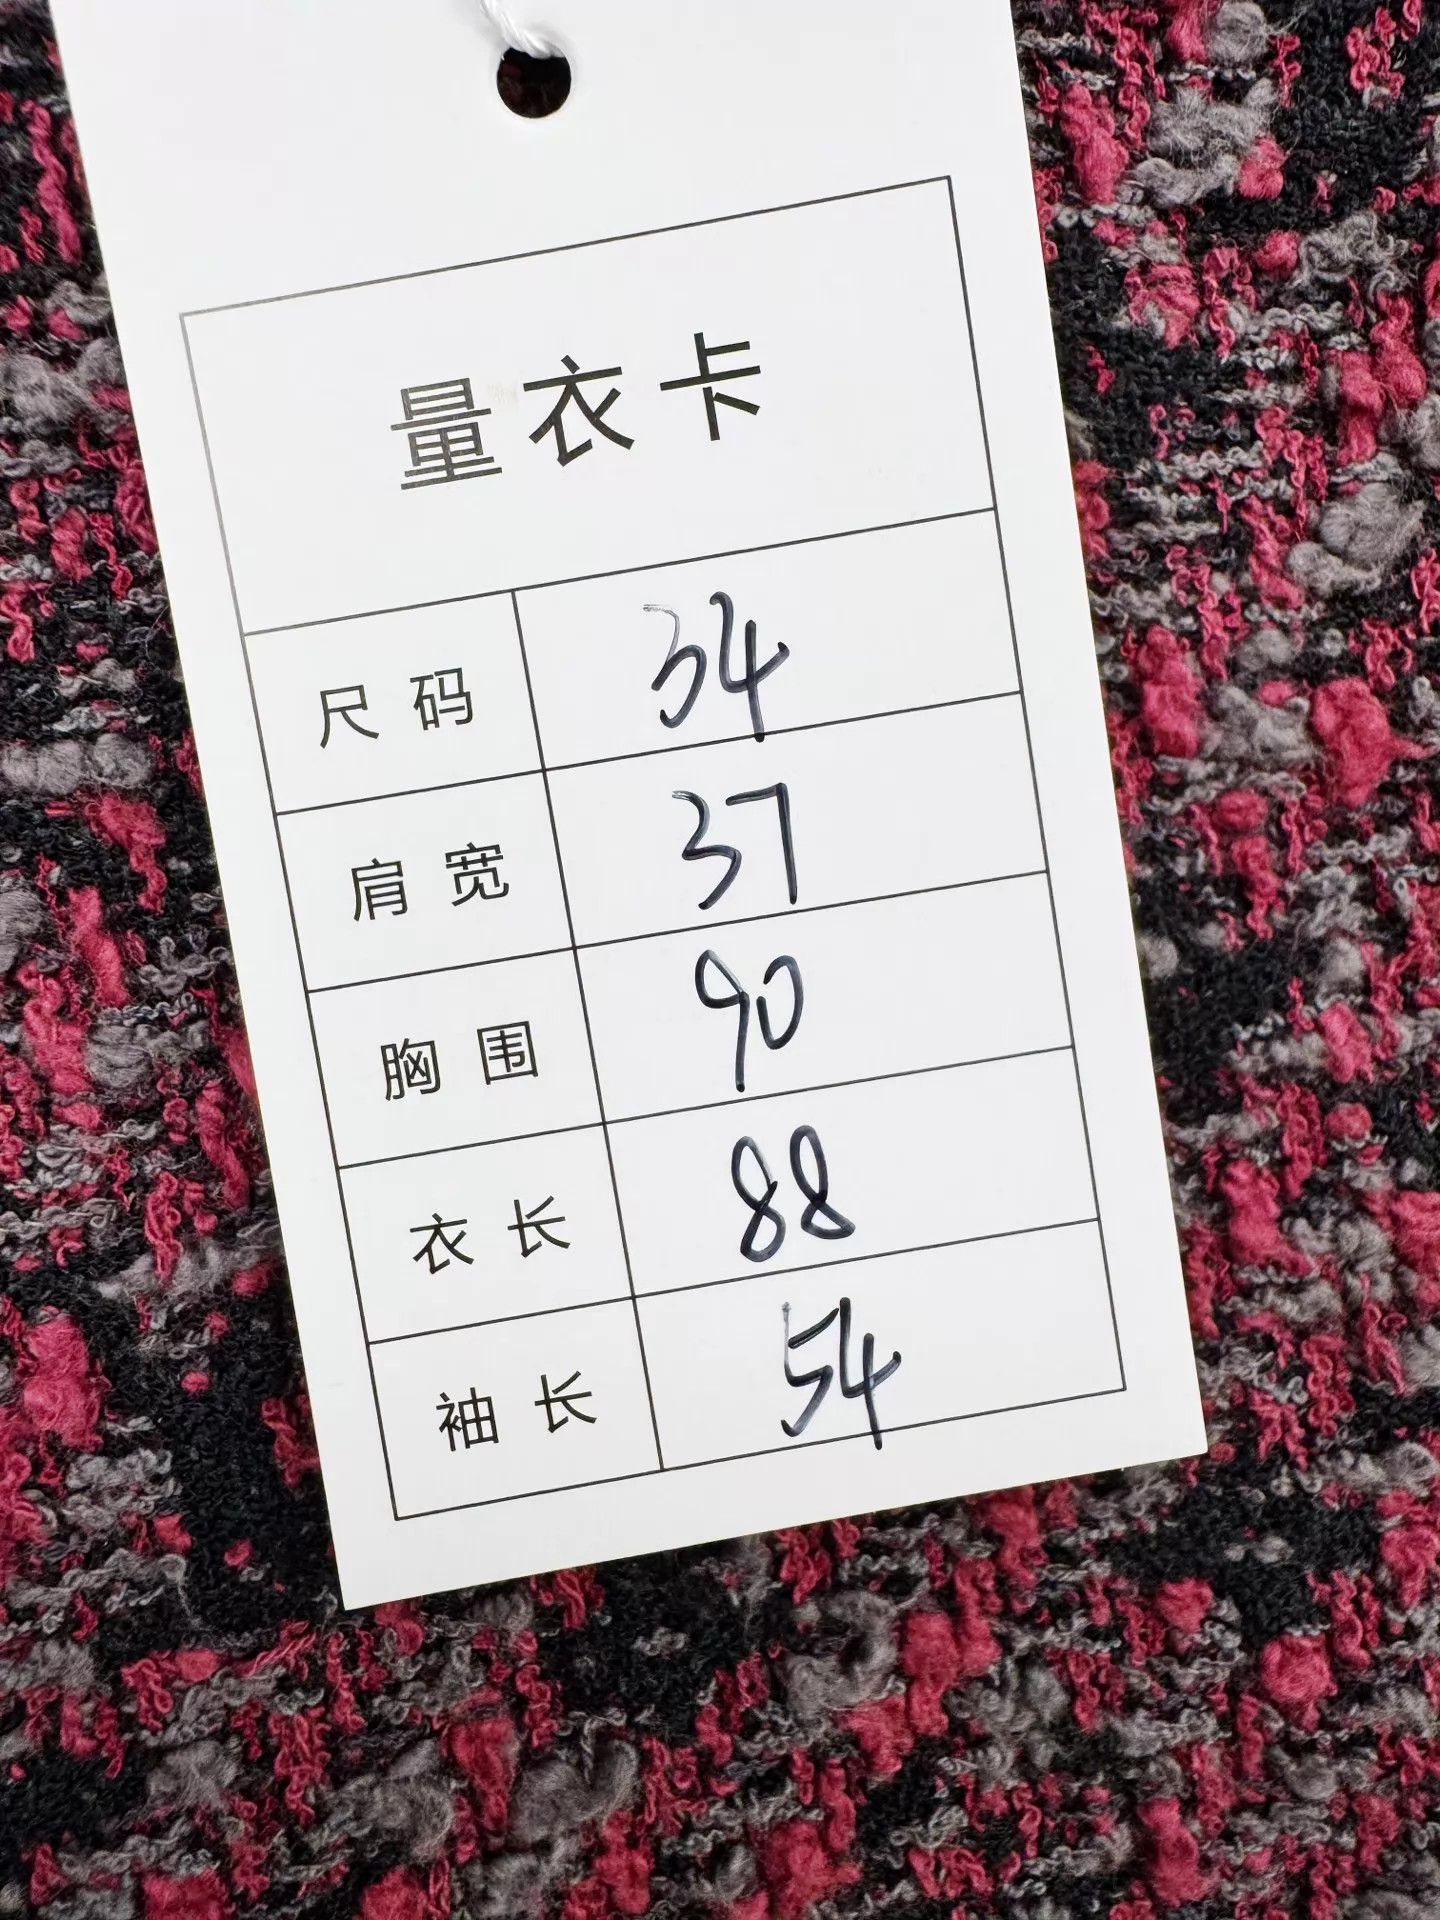 量衣卡
尺码 34
肩宽 37
胸围 90
衣长 88
袖长 54